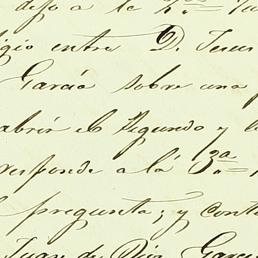 dejo a la
igio entre D. Jesus
García sobre una
abrir el segundo y l
responde a la 3.a
pregunta; y cont
Juan de Dios Garc